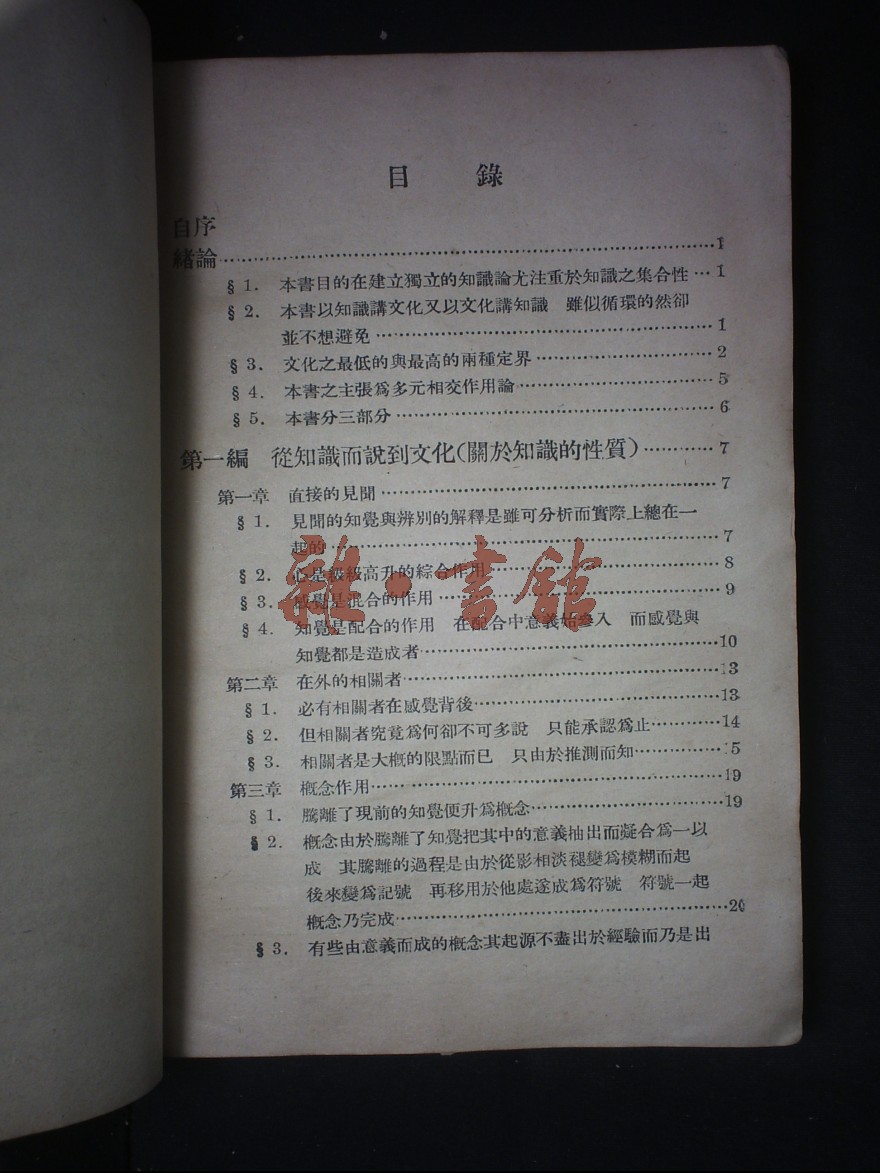 目 錄
自序
緒論…………1
§ 1. 本書目的在建立獨立的知識論尤注重於知識之集合性…1
§ 2. 本書以知識講文化又以文化講知識 雖似循環的然卻
並不想避免…………1
§ 3. 文化之最低的與最高的兩種定界…………2
§ 4. 本書之主張爲多元相交作用論…………5
§ 5. 本書分三部分…………6
第一編 從知識而說到文化(關於知識的性質)…………7
第一章 直接的見聞…………7
§ 1. 見聞的知覺與辨別的解釋是雖可分析而實際上總在一
起的…………7
§ 2. 心是級級高升的綜合作用…………8
§ 3. 感覺是混合的作用…………9
§ 4. 知覺是配合的作用 在配合中意義始參入 而感覺與
知覺都是造成者…………10
第二章 在外的相關者…………13
§ 1. 必有相關者在感覺背後…………13
§ 2. 但相關者究竟爲何卻不可多說 只能承認爲止…………14
§ 3. 相關者是大概的限點而已 只由於推測而知…………15
第三章 概念作用…………19
§ 1. 騰離了現前的知覺便升爲概念…………19
§ 2. 概念由於騰離了知覺把其中的意義抽出而凝合爲一以
成 其騰離的過程是由於從影相淡褪變爲模糊而起
後來變爲記號 再移用於他處遂成爲符號 符號一起
概念乃完成…………20
§ 3. 有些由意義而成的概念其起源不盡出於經驗而乃是出
雜·書館